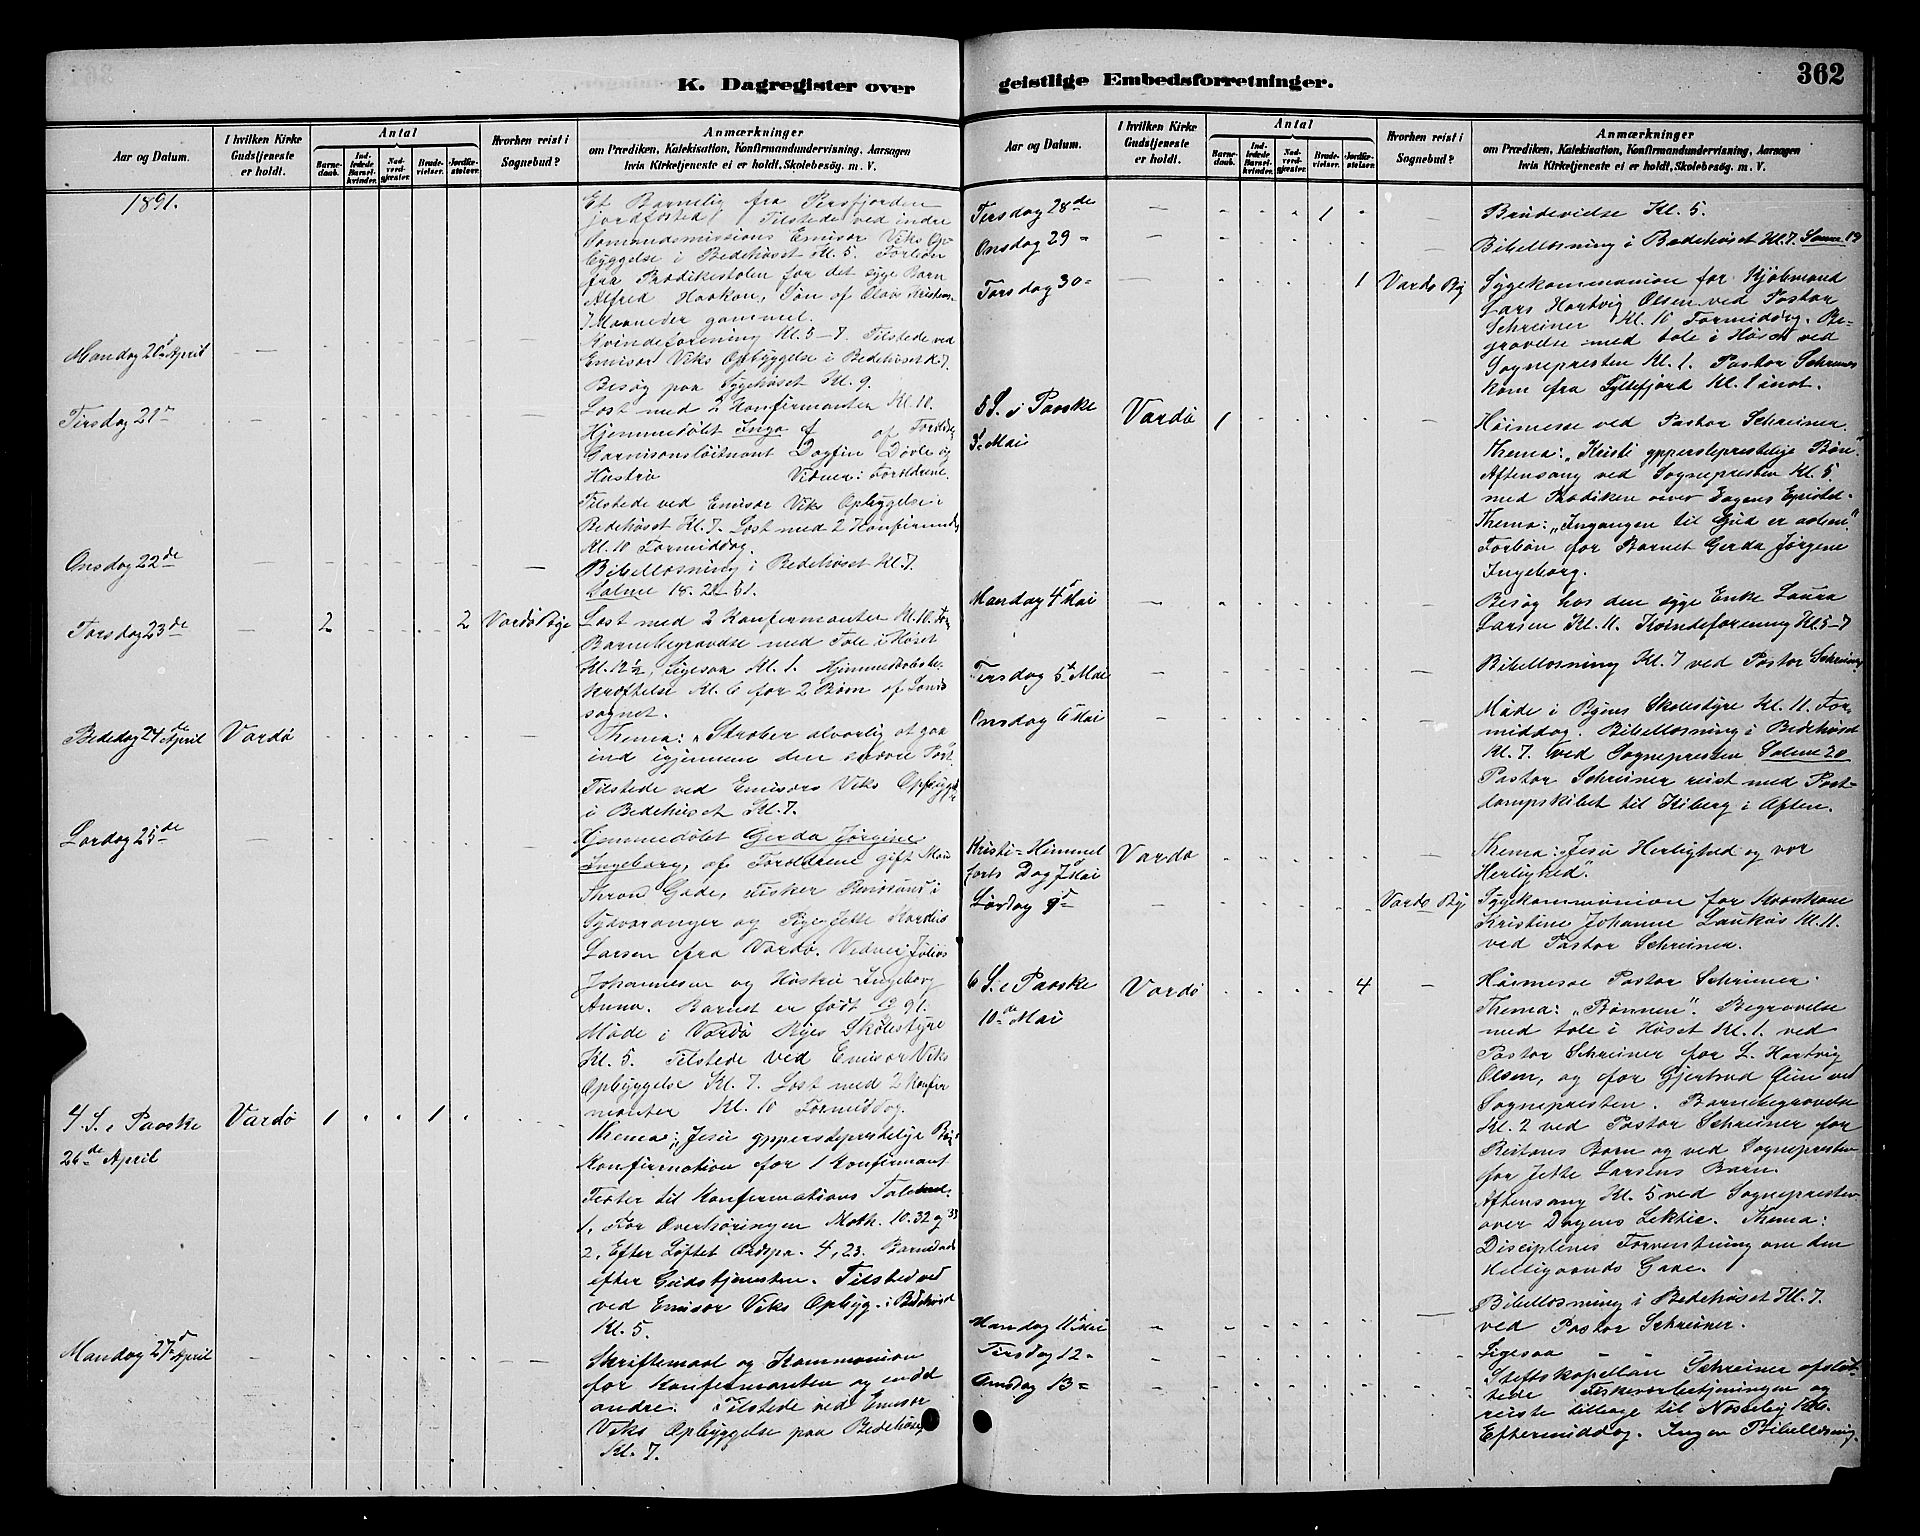 K. Dagregister over
Aar og Datum.
I hvilken Kirke Gudstjeneste er holdt.
Antal
Barnedaab. Indledede Barselkvinder. Nadverdgjæster. Brudevielser. Jordfæstelser.
Hvorhen reist i Sognebud?
Anmærkninger
om Prædiken, Katekisation, Konfirmandundervisning, Aarsagen
hvis Kirketjeneste ei er holdt, Skolebesög. m. V.
1891.
Et Barnelig fra Persfjorden
jordfæsted. Tilstede ved indre
Sømandsmissions Emisær Viks Op-
byggelse i Bedehuset Kl. 5. Forbøn
fra Prædikestolen for det syge Barn
Alfred Haakon, Søn af Olav Kristens.
7 Maaneder gammel.
Mandag 20de April
Kvindeforening Kl. 5-7. Tilstede ved
Emisær Viks Opbyggelse i Bedehuset Kl 7.
Besøg paa Sygehuset Kl. 9.
Tirsdag 21de
Læst med 2 Konfirmanter Kl. 10.
Hjemmedøbt Inga af Forældre
Garnisonsløitnant Dagfin Døvle og
Hustru Vidner: Forældrene.
Tilstede ved Emisær Viks Opbyggelse i
Bedehuset Kl. 7. Læst med 2 Konfirmander
Kl. 10 Formiddag.
Onsdag 22de
Bibellæsning i Bedehuset Kl. 7.
Salme 18. 21-51.
Torsdag 23de - 2 2 Vardø Bye
Læst med 2 Konfirmanter Kl. 10. For
Barnebegravelse med Tale i Huset
Kl. 12 1/2, Ligesaa Kl. 1. Hjemmedaabsbe-
kræftelse Kl. 6 for 2 Børn af Lands
sognet.
Bededag 24de April Vardø
Thema: „Stræber alvorlig at gaa
ind igjennem den snevre Port"
Tilstede ved Emisærs Viks Opbygge
i Bedehuset Kl. 7.
Lørdag 25de
Hjemmedøbt Gerda Jørgine
Ingeborg, af Forældrene gift Mand
Thron Gade, Fisker i
Sydvaranger og Pige Jette Kardis
Larsen fra Vardø. Vidner: Julius
Johannesen og Hustru Ingeborg
Anna. Barnet er født 91.
Møde i Vardø Byes Skolestyre
Kl. 5. Tilstede ved Emisær Viks
Opbyggelse Kl. 7. Læst med 2 Konfir
manter Kl. 10 Formiddag.
4. S. e Paaske Vardø 1 1
26de April
Thema: „Jesu ypperstepræstelige Bøn
Konfirmation for 1 Konfirmant
Texter til Konfirmations Talerne
1, For Overhøringen Math. 10.32 og 33
2, Efter Løftet Ordspr. 4, 23. Barnedaab
efter Gudstjenesten. Tilsted ved
ved Emisær Viks Opbyg. i Bedehuset
Kl. 5.
Mandag 27de April
Skriftemaal og Kommunion
for Konfirmanten og endel
andre. Tilstede ved Emisær
Viks Opbyggelse paa Bedehuset
Kl. 7.
geistlige Embedsforretninger.
362
Aar og Datum.
I hvilken Kirke Gudstjeneste er holdt.
Antal
Barnedaab. Indledede Barselkvinder. Nadverdgjæster. Brudevielser. Jordfæstelser.
Hvorhen reist i Sognebud?
Anmærkninger
om Prædiken, Katekisation, Konfirmandundervisning, Aarsagen
hvis Kirketjeneste ei er holdt, Skolebesög. m. V.
Tirsdag 28de 1 Brudevielse Kl. 5.
Onsdag 29 Bibellæsning i Bedehuset Kl. 7. Salme 19
Torsdag 30 1 Vardø By
Sygekommunion for Kjøbmand
Lars Hartvig Olsen ved Pastor
Schreiner Kl. 10 Formiddag. Be-
gravelse med tale i Huset ved
Sognepresten Kl. 1. Pastor Schreiner
kom fra Syltefjord Kl. 1 inat.
5 S. e Paaske Vardø 1
3. Mai
Høimesse ved Pastor Schreiner.
Thema: „Kristi ypperstepræstelige Bøn."
Aftensang ved Sognepresten Kl. 5
med Prædiken over Dagens Epistel.
Thema: „Ingangen til Gud er aaben."
Forbøn for Barnet Gerda Jørgine
Ingeborg.
Mandag 4de Mai
Besøg hos den syge Enke Laura
Larsen Kl. 11. Kvindeforening Kl. 5-7
Tirsdag 5te Mai
Bibellæsning Kl. 7 ved Pastor Schreiner
Onsdag 6 Mai
Møde i Byens Skolestyre Kl. 11. For-
middag. Bibellæsning i Bedehuset
Kl. 7. ved Sognepresten Salme 20
Pastor Schreiner reist med Post-
dampskibet til Kiberg i Aften.
Kristi-Himmel Vardø
farts Dag 7de Mai
Thema: „Jesu Herlighed og vor
Herlighed".
Lørdag 9de Vardø By
Sygekommunion for
Kristine Johanne Kl. 11.
ved Pastor Schreiner.
6 S. e Paaske Vardø 4
10de Mai
Høimesse Pastor Schreiner.
Thema: „Bønnen". Begravelse
med tale i Huset Kl. 1. ved
Pastor Schreiner for L. Hartvig
Olsen, og for Gjertrud ved
Sognepresten. Barnebegravelse
Kl. 2 ved Pastor Schreiner for
Barn og ved Sognepresten
for Jette Larsens Barn.
Aftensang Kl. 5 ved Sognepresten
over Dagens Lektie. Thema:
Disciplenes Forventning om den
Helligaands Gave.
Mandag 11 Mai
Bibellæsning i Bedehuset Kl. 7.
ved Pastor Schreiner.
Tirsdag 12 Ligesaa
Onsdag 13
Stiftskapellan Schreiner afslut-
tede Fiskeværbetjeningen og
reiste tilbage til Næsseby Kl 6.
Eftermiddag. Ingen Bibellæsning.